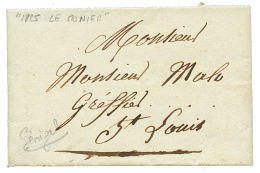 "1825 LE MONIER"
Monsieur
Monsieur Malo
Gréffier
St Louis